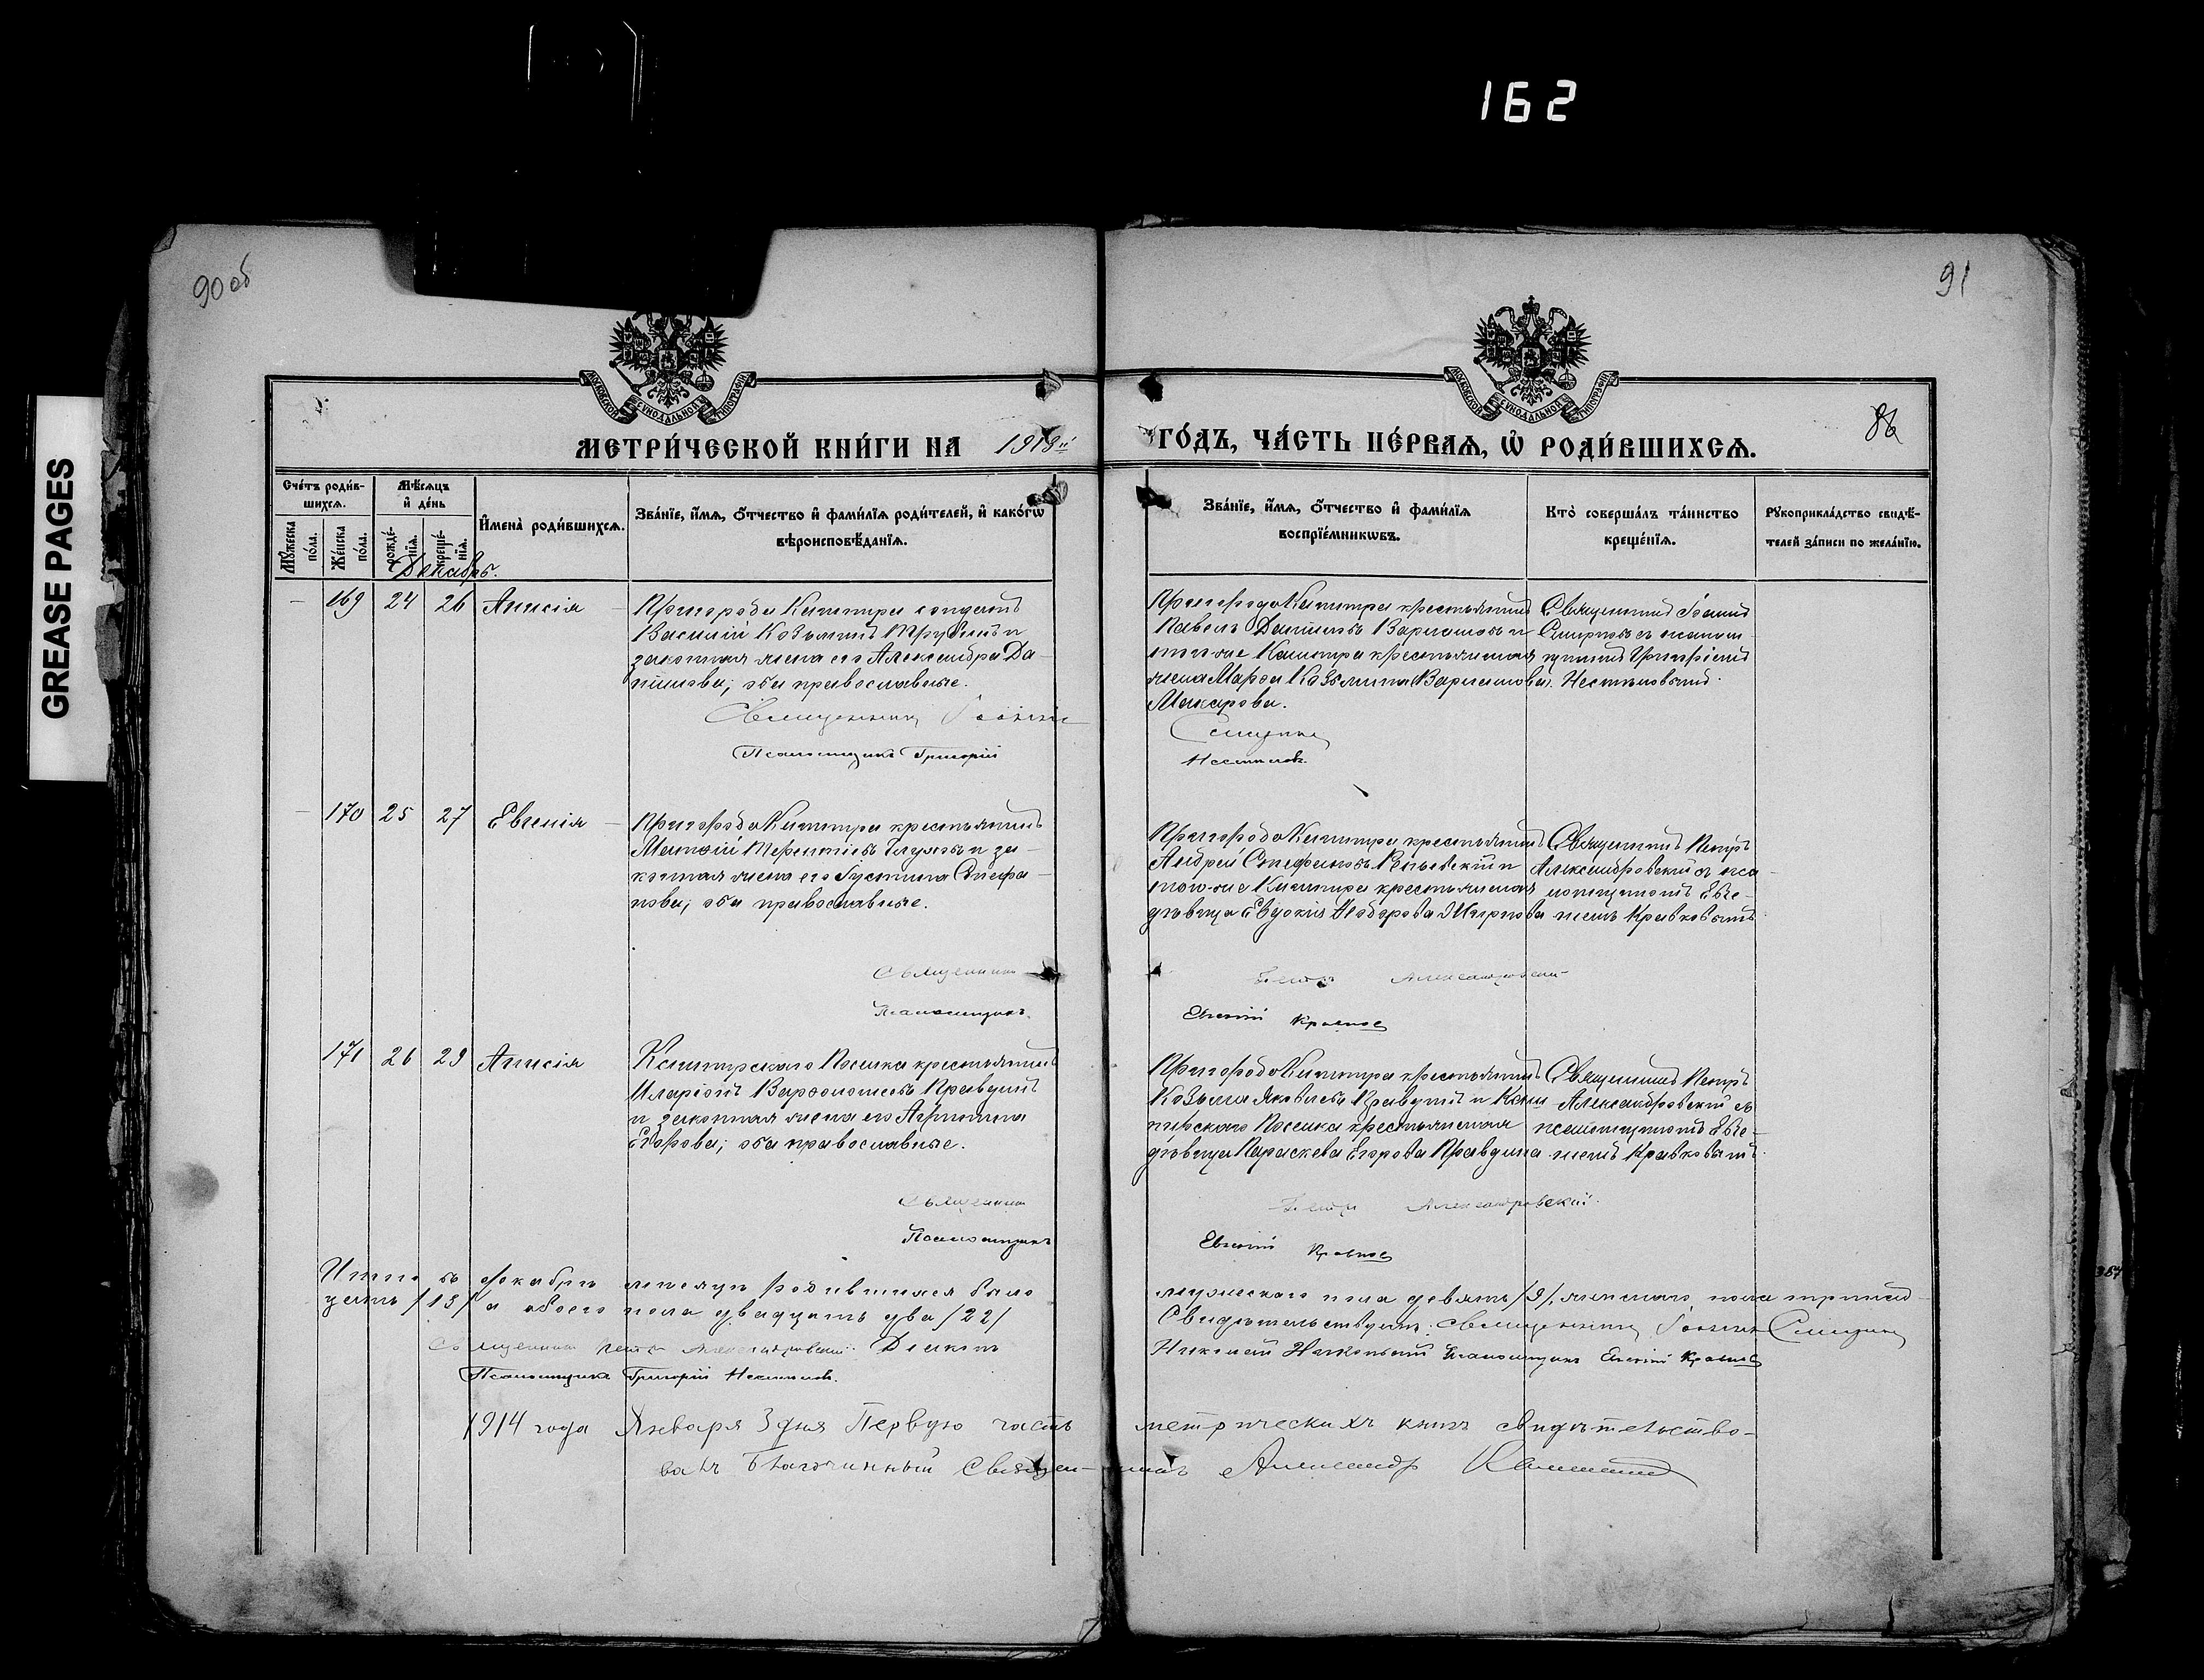 162
GREASE PAGES
90 об
91
86
МОСКОВСКОЙ СѴНОДАЛЬНОЙ ТИПОГРАФІИ
МОСКОВСКОЙ СѴНОДАЛЬНОЙ ТИПОГРАФІИ
МЕТРИ́ЧЕСКОЙ КНИ́ГИ НА 1913й
ГО́ДЪ, ЧА́СТЬ ПЕ́РВАѦ, Ѡ҆ РОДИ́ВШИХСѦ.
Сче́тъ роди́в-
шихсѧ.
Мꙋ́жеска по́ла.
Же́нска по́ла.
Мѣ́сѧцъ
и҆ де́нь
рожде́-
нїѧ.
креще́-
нїѧ.
И҆мена̀ роди́вшихсѧ.
Зва́нїе, и҆́мѧ, ѻ҆́тчество и҆ фами́лїѧ роди́телей, и҆ како́гѡ
вѣроисповѣ́данїѧ.
Зва́нїе, и҆́мѧ, ѻ҆́тчество и҆ фами́лїѧ
воспрїе́мникѡвъ.
Кто̀ соверша́лъ та́инство
креще́нїѧ.
Рꙋкоприкла́дство свидѣ́-
телей за́писи по жела́нїю.
Декабрь.
169 24 26 Анисія
Пригорода Кишпира солдатъ
Василій Козьминъ и
законная жена его Александра Да-
нилова; оба православные.
Священникъ Іоаннъ
Псаломщикъ Григорій
Пригорода Кишпира крестьянинъ
Павелъ Даниловъ Варламовъ и
того-же Кишпира крестьянская
жена Марѳа Козьмина Варламова.
Макарова.
Смирнов
Нестеловъ.
Священникъ Іоаннъ
Смирновъ съ псалом-
щикомъ Григоріемъ
170 25 27 Евгенія
Пригорода Кишпира крестьянинъ
Терентіевъ и за-
конная жена его Іустина Стефа-
нова; оба православные.
Священникъ
Псаломщикъ
Пригорода Кишпира крестьянинъ
Андрей Стефановъ и
того-же Кишпира крестьянская
дѣвица Евдокія Ѳеодорова
Петръ Александровскій
Евгеній Кравковъ
Священникъ Петръ
Александровскій съ пса-
ломщикомъ Евге-
ніемъ Кравковымъ
171 26 29 Анисія
Посада крестьянинъ
Иларіонъ Варѳоломеевъ Правдинъ
и законная жена его Агриппина
Егорова; оба православные.
Священникъ
Псаломщикъ
Пригорода Кишпира крестьянинъ
Козьма Яковлевъ Правдинъ и
Посада крестьянская
дѣвица Параскева Егорова Правдина.
Петръ Александровскій
Евгеній Кравковъ
Священникъ Петръ
Александровскій съ
псаломщикомъ Евге-
ніемъ Кравковымъ
Итого въ декабрѣ мѣсяцѣ родившихся было мужескаго пола девять /9/, женскаго пола тринад-
цать /13/ а обоего пола двадцать два /22/ Свидѣтельствуютъ: Священникъ Іоаннъ Смирнов
Священникъ Петръ Александровскій Діаконъ Николай Никольскій Псаломщикъ Евгеній Кравковъ
Псаломщикъ Григорій Нестеловъ.
1914 года Января 3 дня Первую часть метрическихъ книгъ свидѣтельство-
валъ Благочинный Священникъ Александръ